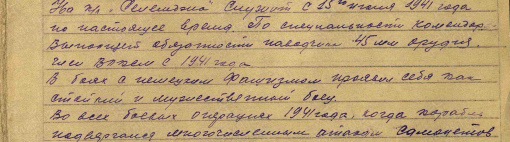 На кл. "Ремонтной" служит с 15го июля 1941 года
по настоящее время. По специальности комендор.
Выполняет обязанности наводчика 45 мм орудия.
Член ВЛКСМ с 1941 года
В боях с немецким фашизмом проявил себя как
стойкий и мужественный боец.
Во всех боевых операциях 1941 года, когда корабль
подвергался многочисленным атакам самолетов